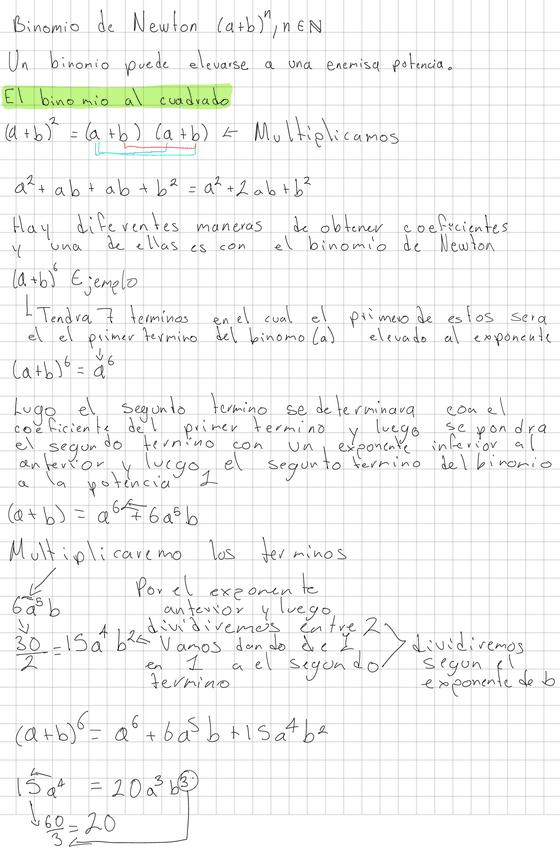 Binomio de Newton (a+b)ⁿ, n ∈ ℕ
Un binomio puede elevarse a una enemisa potencia.
El binomio al cuadrado
(a+b)² = (a+b) (a+b) ← Multiplicamos
a² + ab + ab + b² = a² + 2ab + b²
Hay diferentes maneras de obtener coeficientes
y una de ellas es con el binomio de Newton
(a+b)⁶ Ejemplo
Tendra 7 terminos en el cual el primero de estos sera
el el primer termino del binomo (a) elevado al exponente
(a+b)⁶ = a⁶
Lugo el segunto termino se determinara con el
coeficiente del primer termino y luego se pondra
el segundo termino con un exponente inferior al
anterior y luego el segunto termino del binomio
a la potencia 1
(a+b) = a⁶ + 6a⁵b
Multiplicaremo los terminos
6a⁵b
30/2 = 15a⁴b²
Por el exponente
anterior y luego
dividiremos entre 2
← Vamos dando de 1
en 1 a el segundo
termino
dividiremos
segun el
exponente de b
(a+b)⁶ = a⁶ + 6a⁵b + 15a⁴b²
15a⁴ = 20a³b³
60/3 = 20